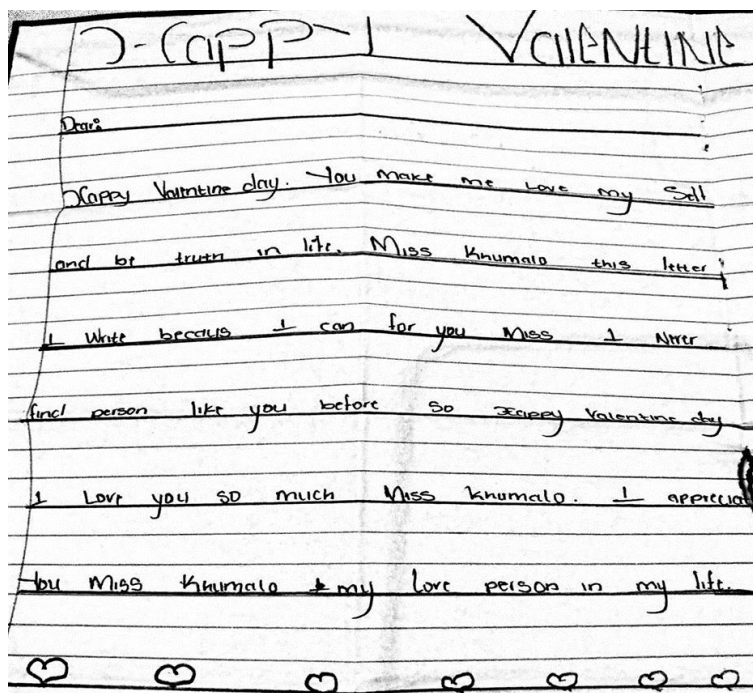 Happy Valentine
Dear:
Happy Valntine day. You make me Love my Self
and be truth in life. Miss Khumalo this letter
I Write becaus I can for you Miss I Never
find person like you before so Happy Valentine day
I Love you so much Miss Khumalo. I appreciat
You Miss Khumalo my love person in my life.